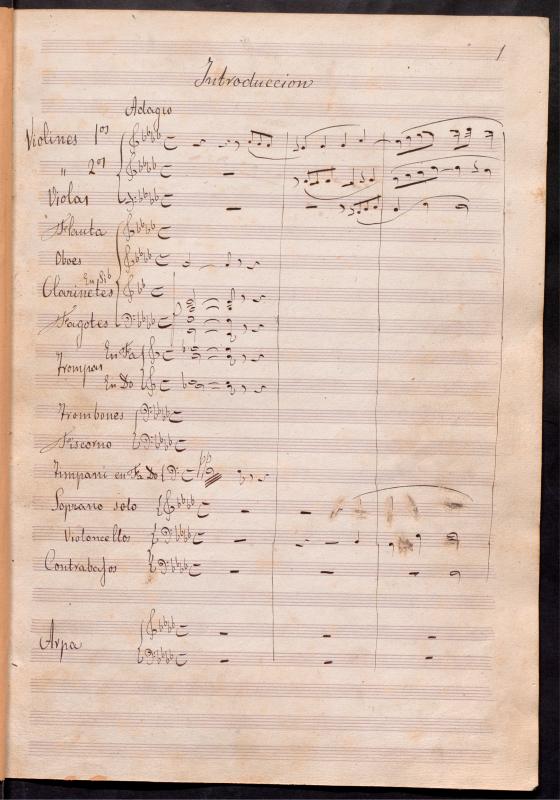 1
Introduccion
Adagio
Violines 1os
" 2os
Violas
Flauta
Oboes
Clarinetes En Sib
Fagotes
Trompas En Fa
En Do
Trombones
Fiscorno
Timpani en Fa Do
Soprano solo
Violoncellos
Contrabajos
Arpa